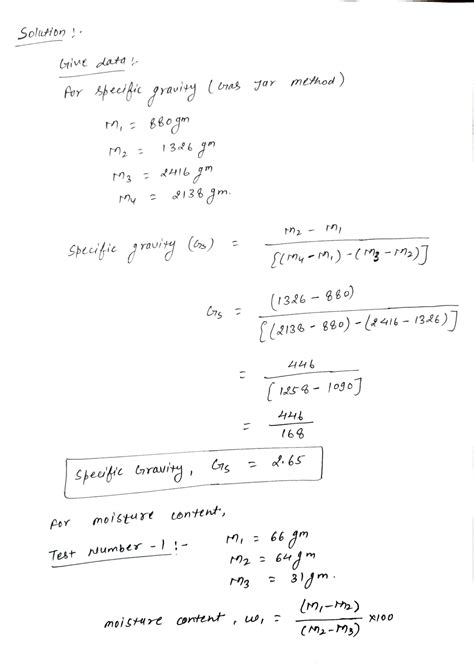 Solution :-
Give data :-
For specific gravity (Gas Jar method)
m₁ = 880gm
m₂ = 1326 gm
m₃ = 2416 gm
m₄ = 2138 gm.
Specific gravity (Gs) = m₂ - m₁ / [(m₄ - m₁) - (m₃ - m₂)]
Gs = (1326 - 880) / [(2138 - 880) - (2416 - 1326)]
= 446 / [1258 - 1090]
= 446 / 168
Specific Gravity, Gs = 2.65
For moisture content,
Test Number - 1 :- m₁ = 66 gm
m₂ = 64 gm
m₃ = 31 gm.
moisture content, w₁ = (m₁-m₂) / (m₂-m₃) ×100